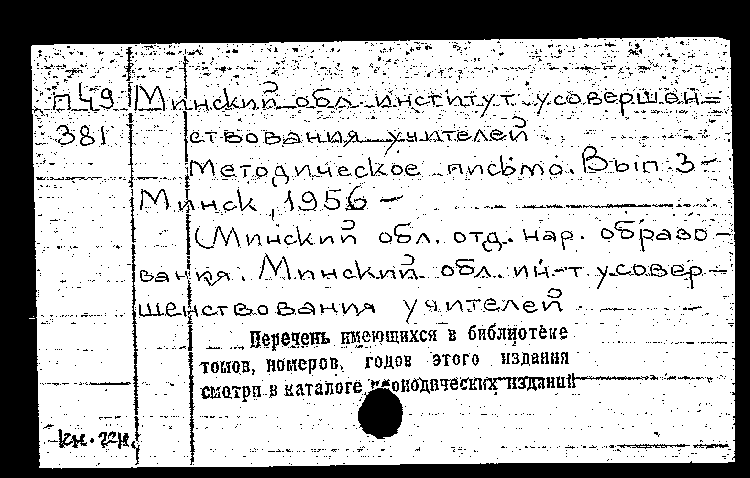 П49 Минский обл. институт усовершен=
381 ствования учителей.
Методическое письмо. Вып. 3-
Минск, 1956 -
(Минский обл. отд. нар. образо-
вания. Минский обл. ин-т усовер-
шенствования учителей.
Перечень имеющихся в библиотеке
томов, номеров, годов этого издания
смотри в каталоге периодических изданий